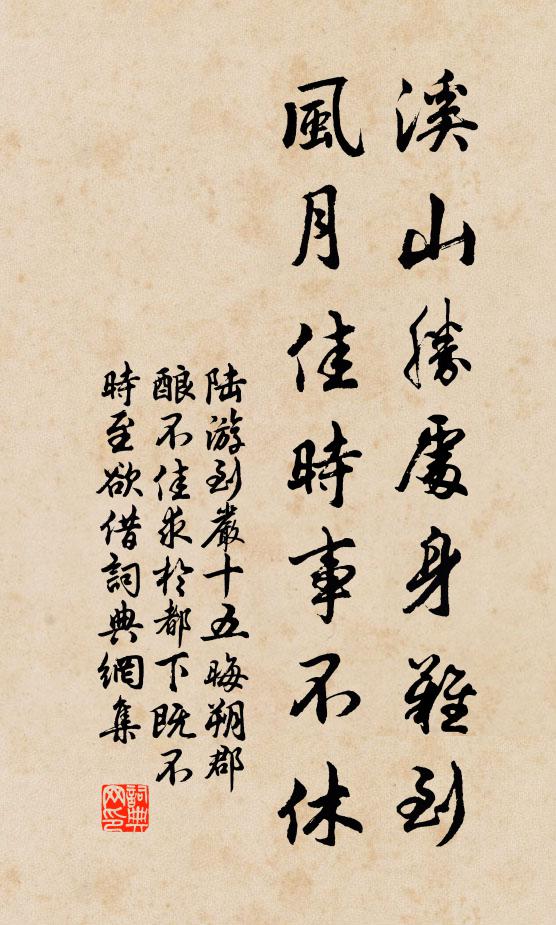 溪山勝處身難到
風月佳時事不休
陆游到嚴十五晦朔郡
酿不佳求於都下既不
時至欲借詞典網集
詞典
网印